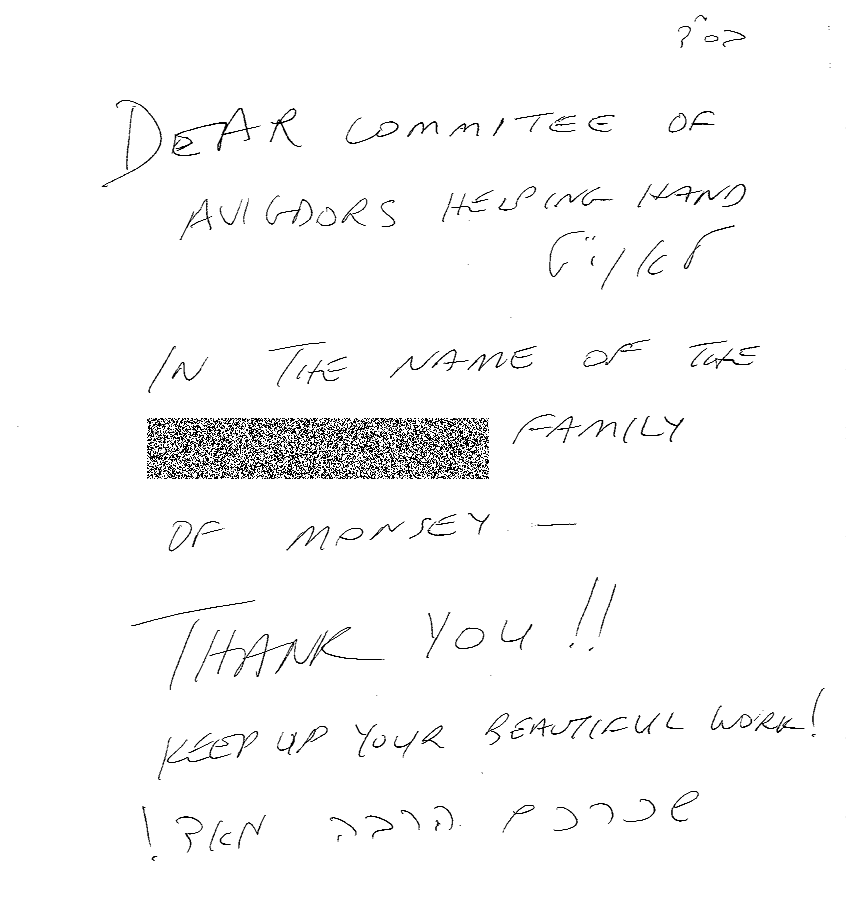 בס"ד
DEAR COMMITEE OF
AVIGDORS HELPING HAND
לאוי"ט
IN THE NAME OF THE
FAMILY
OF MONSEY —
THANK YOU!!
KEEP UP YOUR BEAUTIFUL WORK!
שכרכם הרבה מאד!